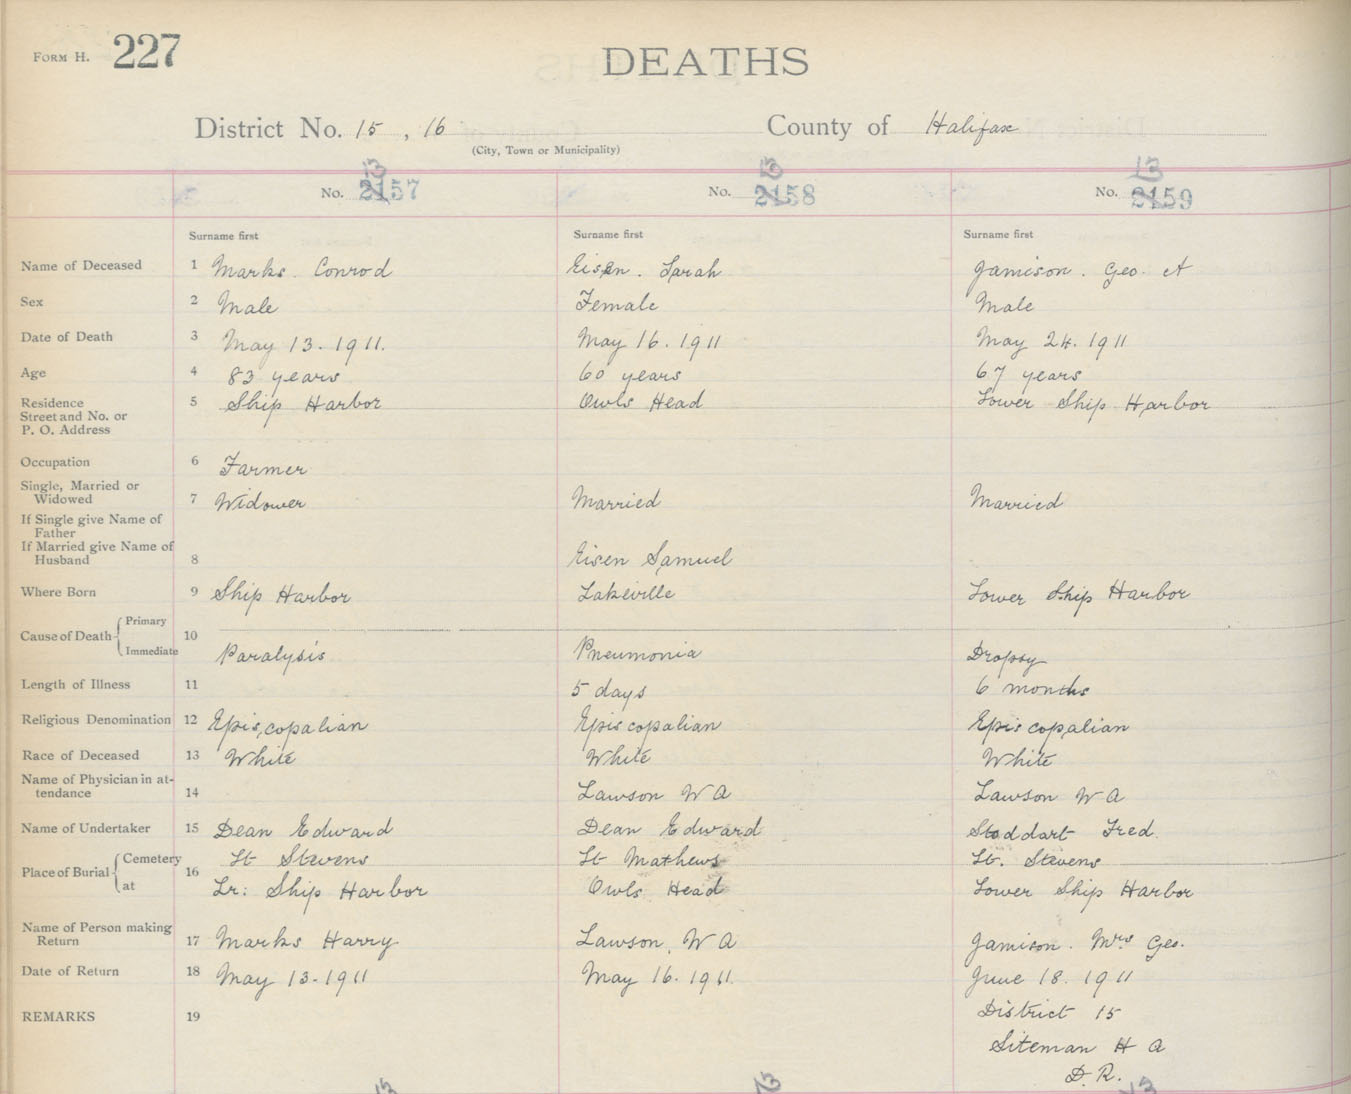 FORM H. 227
DEATHS
District No. 15, 16
County of Halifax
(City, Town or Municipality)
13 13 13
No. 2157 No. 2158 No. 2159
Surname first Surname first Surname first
Name of Deceased 1 Marks. Conrod Eisen. Sarah Jamison. Geo. A
Sex 2 Male Female Male
Date of Death 3 May 13. 1911. May 16. 1911 May 24. 1911
Age 4 83 years 60 years 67 years
Residence 5 Ship Harbor Owls Head Lower Ship Harbor
Street and No. or
P. O. Address
Occupation 6 Farmer
Single, Married or
Widowed 7 Widower Married Married
If Single give Name of
Father
If Married give Name of
Husband 8 Eisen Samuel
Where Born 9 Ship Harbor Lakeville Lower Ship Harbor
Primary
Cause of Death 10
Immediate Paralysis Pneumonia Dropsy
Length of Illness 11 5 days 6 months
Religious Denomination 12 Episcopalian Episcopalian Episcopalian
Race of Deceased 13 White White White
Name of Physician in at-
tendance 14 Lawson W A Lawson W A
Name of Undertaker 15 Dean Edward Dean Edward Stoddart Fred.
Cemetery St Stevens St Mathews St. Stevens
Place of Burial 16
at Lr: Ship Harbor Owls Head Lower Ship Harbor
Name of Person making
Return 17 Marks Harry Lawson, W A Jamison. Mrs Geo.
Date of Return 18 May 13-1911 May 16. 1911. June 18. 1911
REMARKS 19 District 15
Siteman H A
D. R.